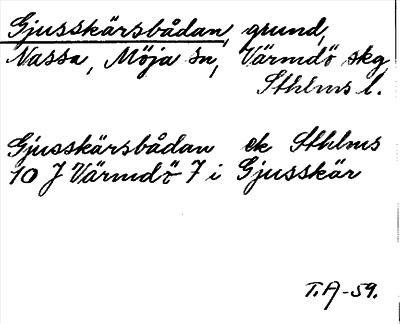 Gjusskärsbådan, grund,
Nassa, Möja sn, Värmdö skg
Sthlms l.
Gjusskärsbådan ek Sthlms
10 J Värmdö 7 i Gjusskär
T.A-59.